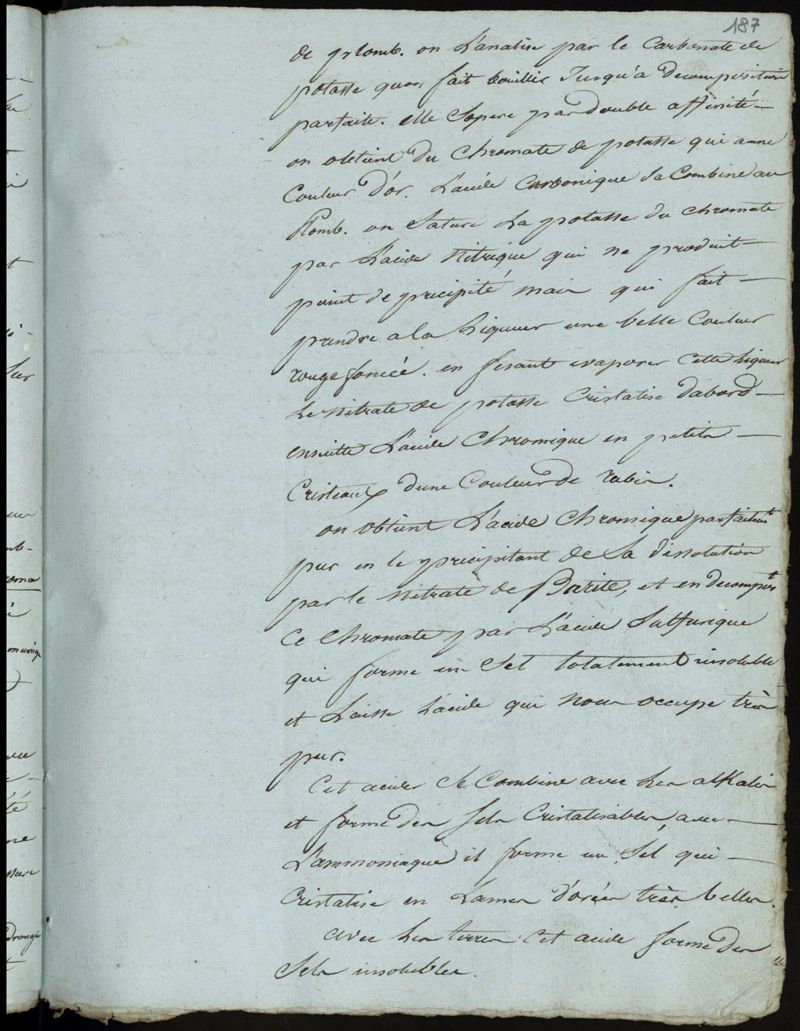 187
de plomb. on L'analise par le Carbonate de
potasse quon fait bouillir Jusqu'a decomposition
parfaite. elle Sopere par double affinité —
on obtient du Chromate de potasse qui a une
Couleur D'or. L'acide Carbonique Sa Combine au
Plomb. on Sature La potasse du chromate
par L'acide Nitrique qui ne produit —
point de precipité mais qui fait —
prendre a la Liqueur une belle Couleur
rouge foncée. en fesant evaporer cette Liqueur
Le Nitrate de potasse Cristalise d'abord —
ensuitte L'acide Chromique en petits —
Cristeaux d'une Couleur de rubis.
on obtient L'acide Chromique parfaitemt
pur en le precipitant de Sa dissolution
par le Nitrate de Barite, et en decompost
Ce Chromate par L'acide Sulfurique
qui forme un Sel totalement insoluble
et Laisse L'acide qui nous occupe très
pur.
Cet acide Se Combine avec Les alKalis
et forme des Sels Cristalisables, avec —
L'ammoniaque il forme un Sel qui —
Cristalise en Lames d'orées très belles.
avec Les terres Cet acide forme des
Sels insolubles.